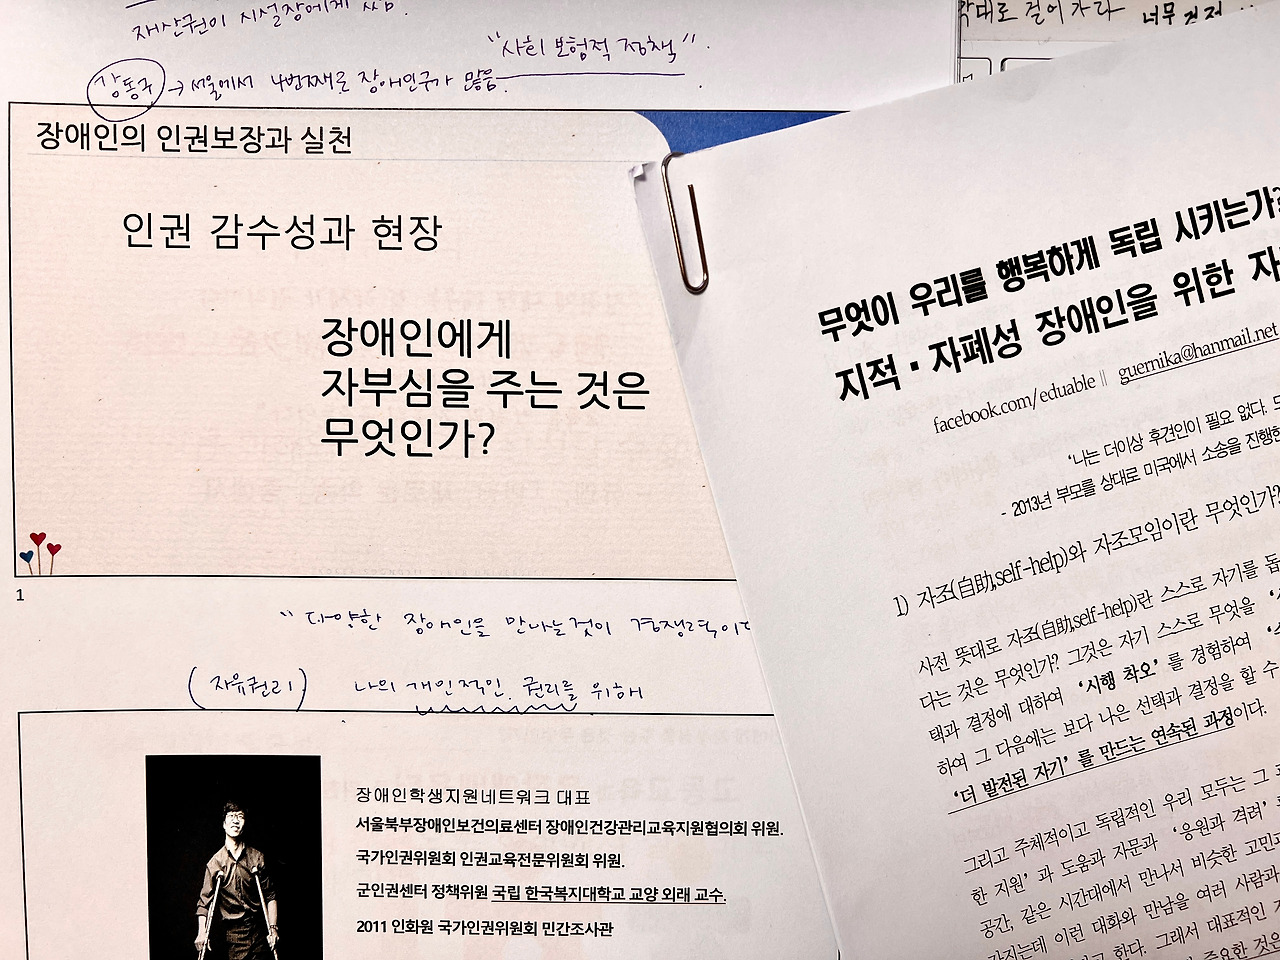 재산권이 시설장에게 있음.
"사회 보험적 정책".
강동구 → 서울에서 4번째로 장애인구가 많음.
장애인의 인권보장과 실천
인권 감수성과 현장
장애인에게
자부심을 주는 것은
무엇인가?
1
"다양한 장애인을 만나는것이 경쟁력이다
(자유권리) 나의 개인적인 권리를 위해
장애인학생지원네트워크 대표
서울북부장애인보건의료센터 장애인건강관리교육지원협의회 위원.
국가인권위원회 인권교육전문위원회 위원.
군인권센터 정책위원 국립 한국복지대학교 교양 외래 교수.
2011 인화원 국가인권위원회 민간조사관
걸어가라 너무 걱정
무엇이 우리를 행복하게 독립 시키는가?
지적·자폐성 장애인을 위한 자
facebook.com/eduable || guernika@hanmail.net
'나는 더이상 후견인이 필요 없다.
- 2013년 부모를 상대로 미국에서 소송을 진행한
1) 자조(自助,self-help)와 자조모임이란 무엇인가?
사전 뜻대로 자조(自助,self-help)란 스스로 자기를 돕
다는 것은 무엇인가? 그것은 자기 스스로 무엇을
택과 결정에 대하여 '시행 착오' 를 경험하여
하여 그 다음에는 보다 나은 선택과 결정을 할 수
'더 발전된 자기' 를 만드는 연속된 과정이다.
그리고 주체적이고 독립적인 우리 모두는 그
한 지원' 과 도움과 자문과 '응원과 격려'
공간, 같은 시간대에서 만나서 비슷한 고민과
가지는데 이런 대화와 만남을 여러 사람과
한다. 그래서 대표적인
중요한 것은